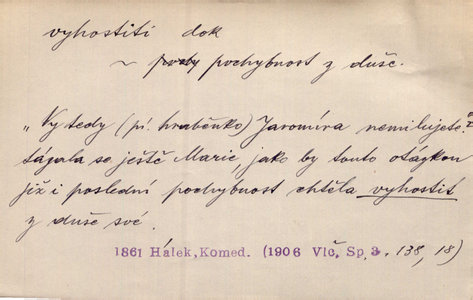 vyhostiti dok
~ pochybnost z duše.
„Vy tedy (pí. hraběnko) Jaromíra nemilujete?"
tázala se ještě Marie, jako by touto otázkou
již i poslední pochybnost chtěla vyhostit
z duše své.
1861 Hálek, Komed. (1906 Vlč. Sp. 3, 138, 18)